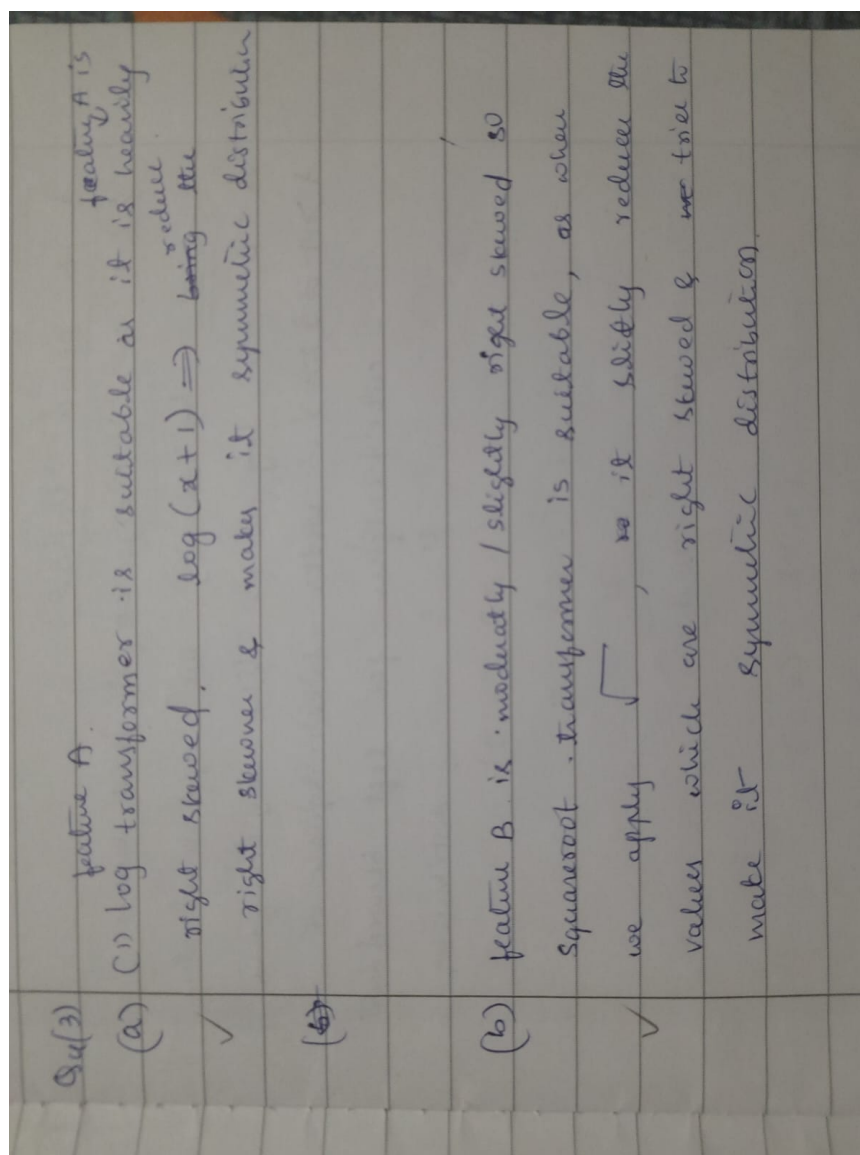 Qu(3)
feature A. feature A is
(a) (1) log transformer is suitable as it is heavily
right skewed. log(x+1) ⇒ being reduce the
✓ right skewnes & makes it symmetric distribution
(b)
(b) feature B is moderatly / slightly right skewed so
Squareroot transformer is suitable, as when
we apply √ , it slitly reduces the
✓ values which are right skewed & tries to
make it symmetric distribution.